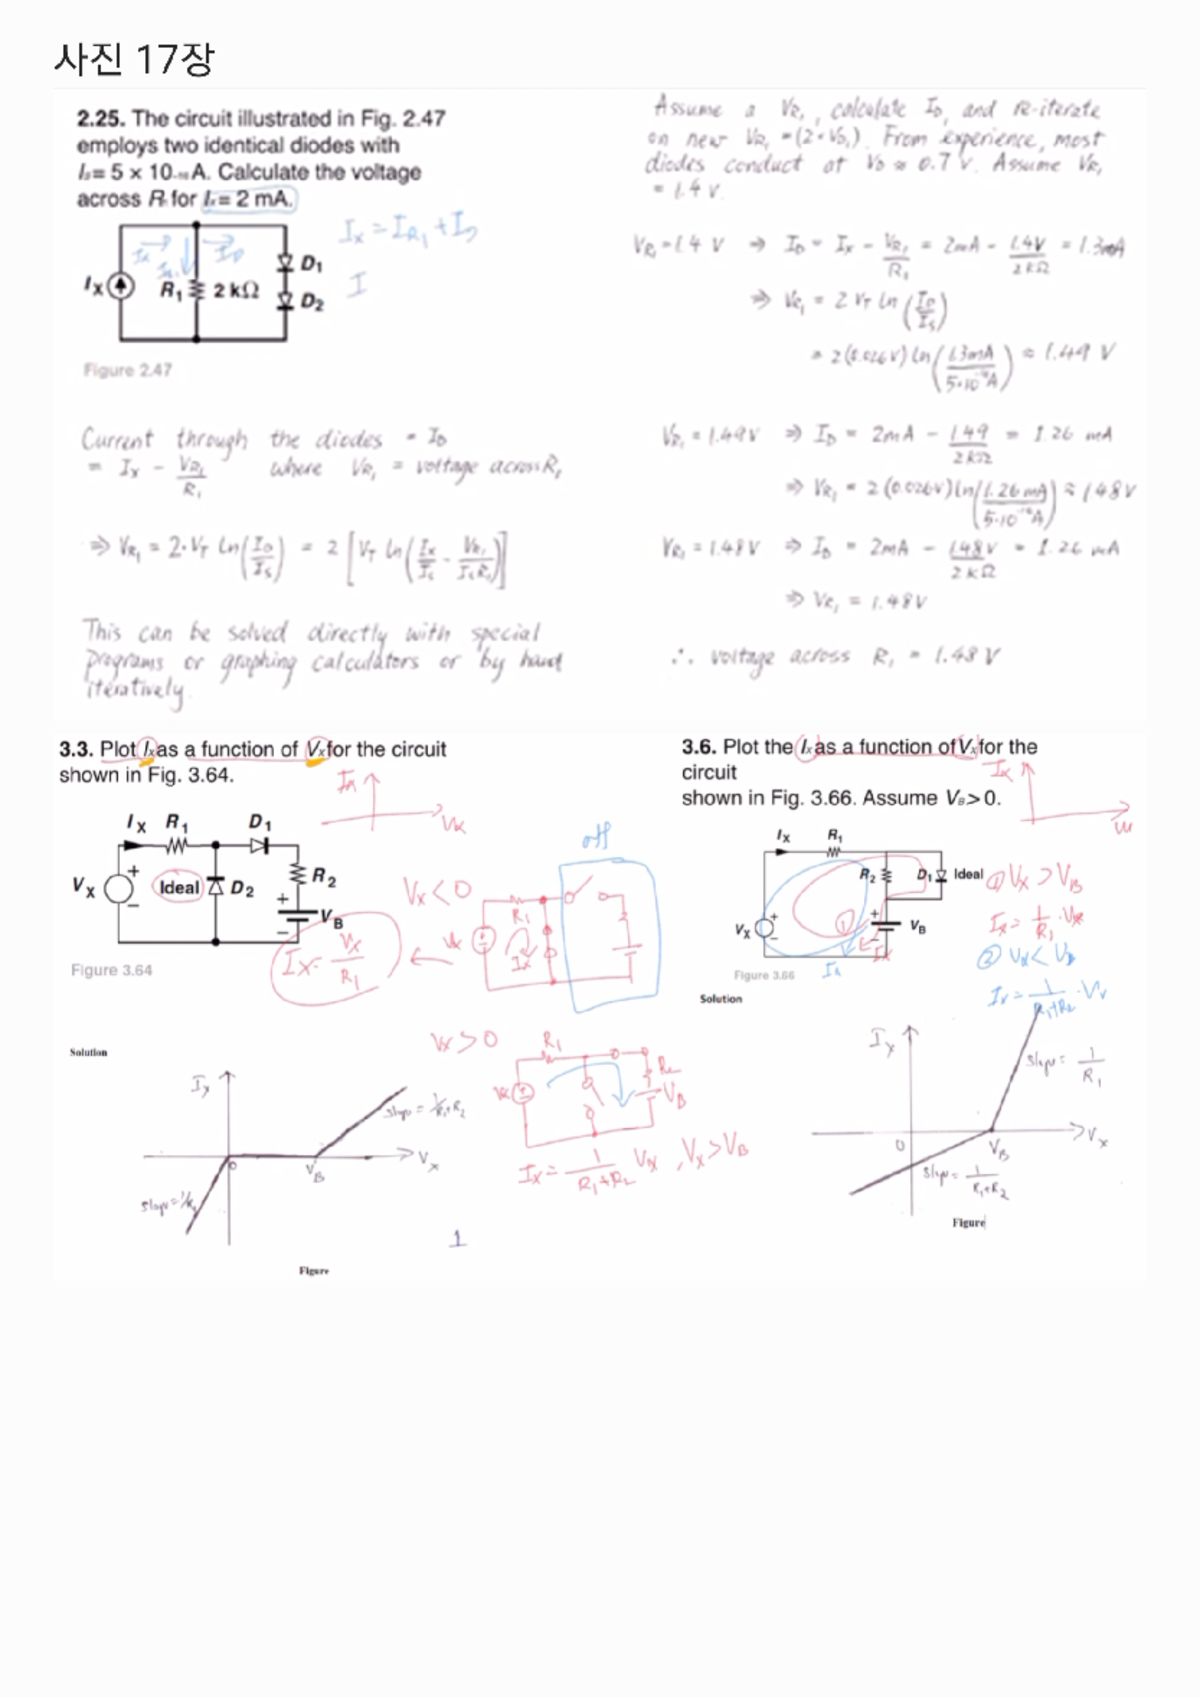 사진 17장
2.25. The circuit illustrated in Fig. 2.47
employs two identical diodes with
Is= 5 × 10-16 A. Calculate the voltage
across R for Ix= 2 mA.
Ix = IR1 + ID
I
Ix
R1
2 kΩ
D1
D2
Figure 2.47
Current through the diodes = ID
= Ix - VR1/R1 where VR1 = voltage across R1
⇒ VR1 = 2·VT ln(ID/IS) = 2[VT ln(Ix/IS - VR1/ISR1)]
This can be solved directly with special
programs or graphing calculators or by hand
iteratively.
Assume a VR1, calculate ID, and re-iterate
on new VR1 = (2·VD1). From experience, most
diodes conduct at VD ≈ 0.7 V. Assume VR1
= 1.4 V.
VR1 = 1.4 V ⇒ ID = Ix - VR1/R1 = 2mA - 1.4V/2kΩ = 1.3mA
⇒ VR1 = 2 VT ln(ID/IS)
= 2(0.026V) ln(1.3mA/5·10-16A) ≈ 1.49 V
VR1 = 1.49V ⇒ ID = 2mA - 1.49/2kΩ = 1.26 mA
⇒ VR1 = 2(0.026V) ln(1.26mA/5·10-16A) ≈ 1.48V
VR1 = 1.48V ⇒ ID = 2mA - 1.48V/2kΩ = 1.26 mA
⇒ VR1 = 1.48V
∴ voltage across R1 = 1.48 V
3.3. Plot Ix as a function of Vx for the circuit
shown in Fig. 3.64.
Ix
Vx
Ix R1 D1
Vx Ideal D2 R2
VB
Figure 3.64
Ix = Vx/R1
Vx<0
off
R1
Vx
Ix
Solution
Ix
slope = 1/R1+R2
0
VB
Vx
slope=1/R1
Figure
Vx>0
R1
Vx
R2
VB
Ix = 1/R1+R2 Vx , Vx>VB
1
3.6. Plot the Ix as a function of Vx for the
circuit
shown in Fig. 3.66. Assume VB>0.
Ix
Vx
Ix R1
R2 D1 Ideal
Vx VB
①
Ix
Ix
Figure 3.66
① Vx > VB
Ix = 1/R1 · Vx
② Vx < VB
Ix = 1/R1+R2 · Vx
Solution
Ix
slope = 1/R1
0
VB
Vx
slope = 1/R1+R2
Figure